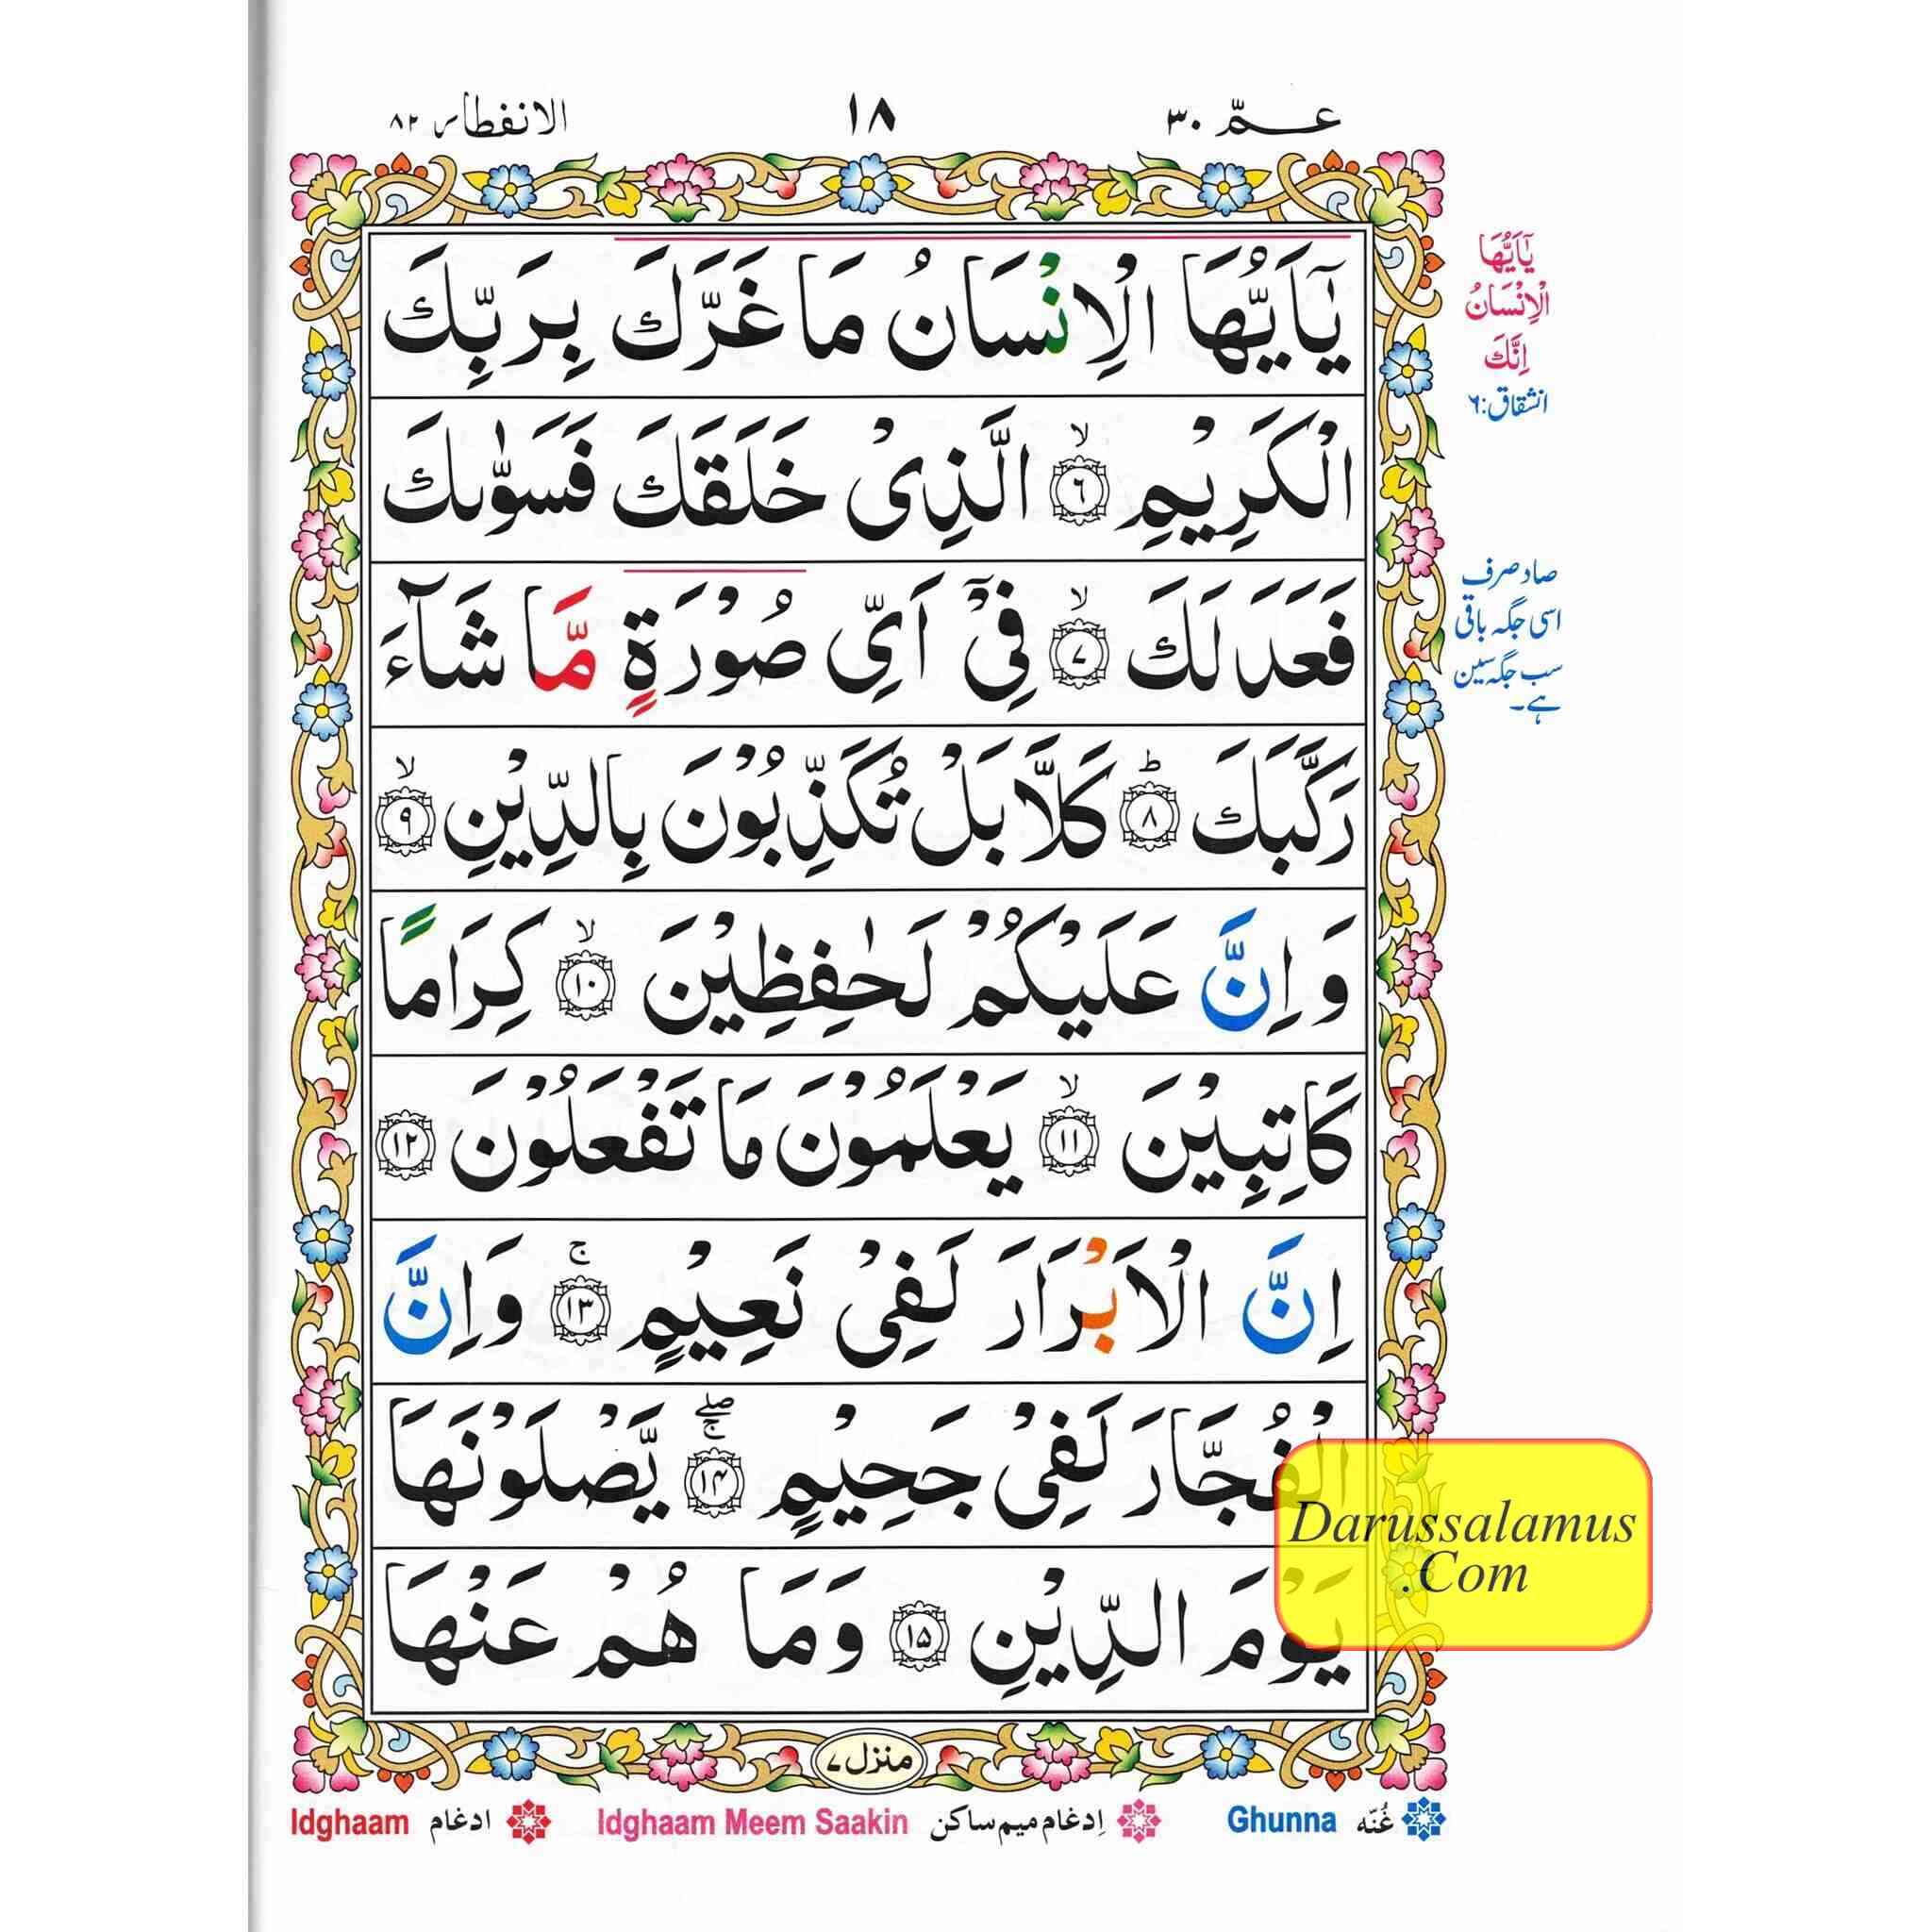 عـمّ ٣٠
١٨
الانفطار ٨٢
يٰۤاَيُّهَا الْاِنْسَانُ مَا غَرَّكَ بِرَبِّكَ
الْكَرِيْمِ ۙ﴿٦﴾ الَّذِىْ خَلَقَكَ فَسَوّٰىكَ
فَعَدَلَكَ ۙ﴿٧﴾ فِىْۤ اَىِّ صُوْرَةٍ مَّا شَآءَ
رَكَّبَكَ ؕ﴿٨﴾ كَلَّا بَلْ تُكَذِّبُوْنَ بِالدِّيْنِ ۙ﴿٩﴾
وَاِنَّ عَلَيْكُمْ لَحٰفِظِيْنَ ۙ﴿١٠﴾ كِرَامًا
كَاتِبِيْنَ ۙ﴿١١﴾ يَعْلَمُوْنَ مَا تَفْعَلُوْنَ ﴿١٢﴾
اِنَّ الْاَبْرَارَ لَفِىْ نَعِيْمٍ ۚ﴿١٣﴾ وَاِنَّ
الْفُجَّارَ لَفِىْ جَحِيْمٍ ۖۚ﴿١٤﴾ يَّصْلَوْنَهَا
يَوْمَ الدِّيْنِ ﴿١٥﴾ وَمَا هُمْ عَنْهَا
يٰۤاَيُّهَا
الْاِنْسَانُ
اِنَّكَ
انشقاق:٦
صاد صرف
اسی جگہ باقی
سب جگہ سین
ہے۔
Darussalamus
.Com
منزل ٧
غُنّه Ghunna
اِدغام میم ساکن Idghaam Meem Saakin
ادغام Idghaam